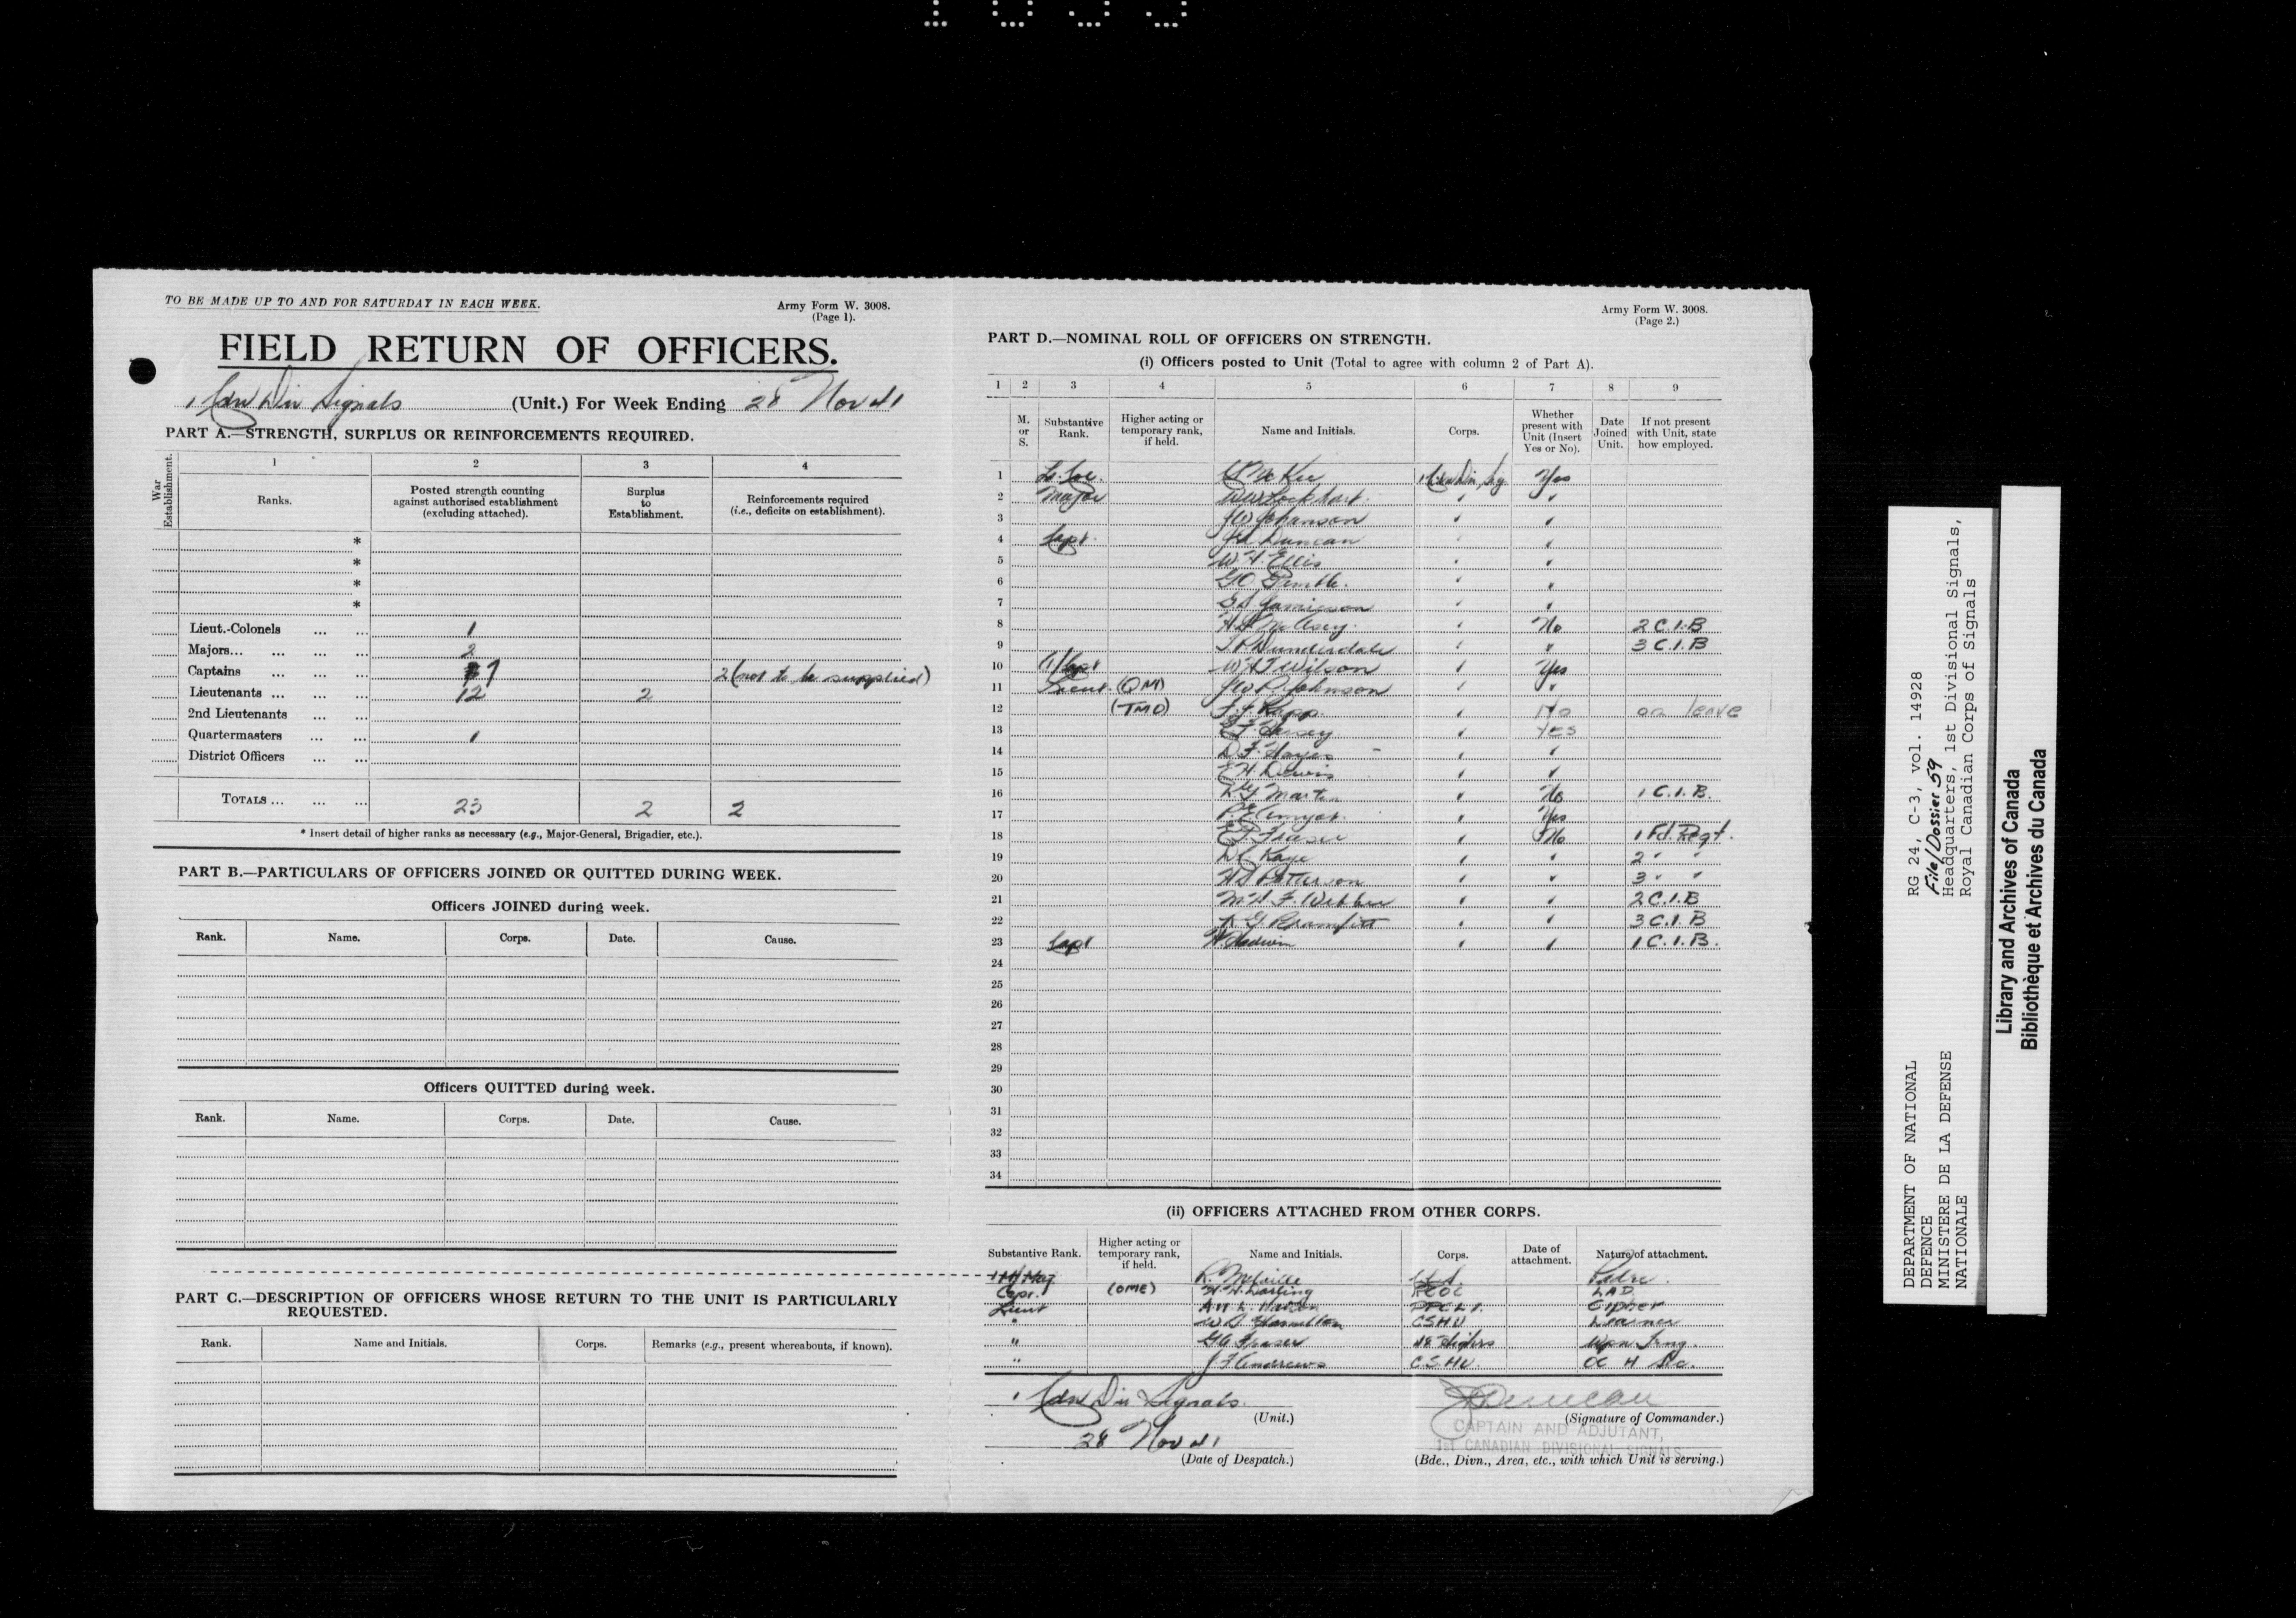 TO BE MADE UP TO AND FOR SATURDAY IN EACH WEEK.
Army Form W. 3008.
(Page 1).
FIELD RETURN OF OFFICERS.
1 Cdn Div Signals (Unit.) For Week Ending 28 Nov 41
PART A.—STRENGTH, SURPLUS OR REINFORCEMENTS REQUIRED.
War Establishment.
1 2 3 4
Ranks. Posted strength counting against authorised establishment (excluding attached). Surplus to Establishment. Reinforcements required (i.e., deficits on establishment).
*
*
*
*
Lieut.-Colonels ... ... 1
Majors... ... ... ... 2
Captains ... ... ... 7 2 (not to be supplied)
Lieutenants ... ... ... 12 2
2nd Lieutenants ... ...
Quartermasters ... ... 1
District Officers ... ...
TOTALS ... ... ... 23 2 2
* Insert detail of higher ranks as necessary (e.g., Major-General, Brigadier, etc.).
PART B.—PARTICULARS OF OFFICERS JOINED OR QUITTED DURING WEEK.
Officers JOINED during week.
Rank. Name. Corps. Date. Cause.
Officers QUITTED during week.
Rank. Name. Corps. Date. Cause.
PART C.—DESCRIPTION OF OFFICERS WHOSE RETURN TO THE UNIT IS PARTICULARLY
REQUESTED.
Rank. Name and Initials. Corps. Remarks (e.g., present whereabouts, if known).
Army Form W. 3008.
(Page 2.)
PART D.—NOMINAL ROLL OF OFFICERS ON STRENGTH.
(i) Officers posted to Unit (Total to agree with column 2 of Part A).
1 2 3 4 5 6 7 8 9
M. or S. Substantive Rank. Higher acting or temporary rank, if held. Name and Initials. Corps. Whether present with Unit (Insert Yes or No). Date Joined Unit. If not present with Unit, state how employed.
1 Lt. Col. McKee 1 Cdn Div Sig Yes
2 Major WW Lockhart " "
3 JW Johanson " "
4 Capt. Duncan " "
5 W.H. Ellis " "
6 G.O. " "
7 G.S. Jamieson " "
8 " No 2 C.I.B
9 Dunderdale " " 3 C.I.B
10 Capt Wilson " Yes
11 Lieut. (QM) JW R Johnson " "
12 (TMO) Rapp " No on leave
13 " Yes
14 D.F. Hayes - " "
15 E.H. " "
16 Martin " No 1 C.I.B.
17 " Yes
18 Fraser " No 1 Fd. Regt.
19 Kaye " " 2 " "
20 Patterson " " 3 " "
21 F. Webber " " 2 C.I.B
22 Bramfitt " " 3 C.I.B
23 Capt " " 1 C.I.B.
24
25
26
27
28
29
30
31
32
33
34
(ii) OFFICERS ATTACHED FROM OTHER CORPS.
Substantive Rank. Higher acting or temporary rank, if held. Name and Initials. Corps. Date of attachment. Nature of attachment.
R. Melville Padre.
Capt. (OME) Darling RCOC LAD
Lieut PPCLI Cipher
" Hamilton CSHU Learner
" Fraser 48 Hldrs Wpn Trng.
" J F Andrews CSHU OC H Sec.
1 Cdn Div Signals
(Unit.)
Duncan
(Signature of Commander.)
CAPTAIN AND ADJUTANT,
1ST CANADIAN DIVISIONAL SIGNALS
28 Nov 41
(Date of Despatch.)
(Bde., Divn., Area, etc., with which Unit is serving.)
DEPARTMENT OF NATIONAL
DEFENCE
MINISTERE DE LA DEFENSE
NATIONALE
RG 24, C-3, vol. 14928
File/Dossier 59
Headquarters, 1st Divisional Signals,
Royal Canadian Corps of Signals
Library and Archives of Canada
Bibliothèque et Archives du Canada